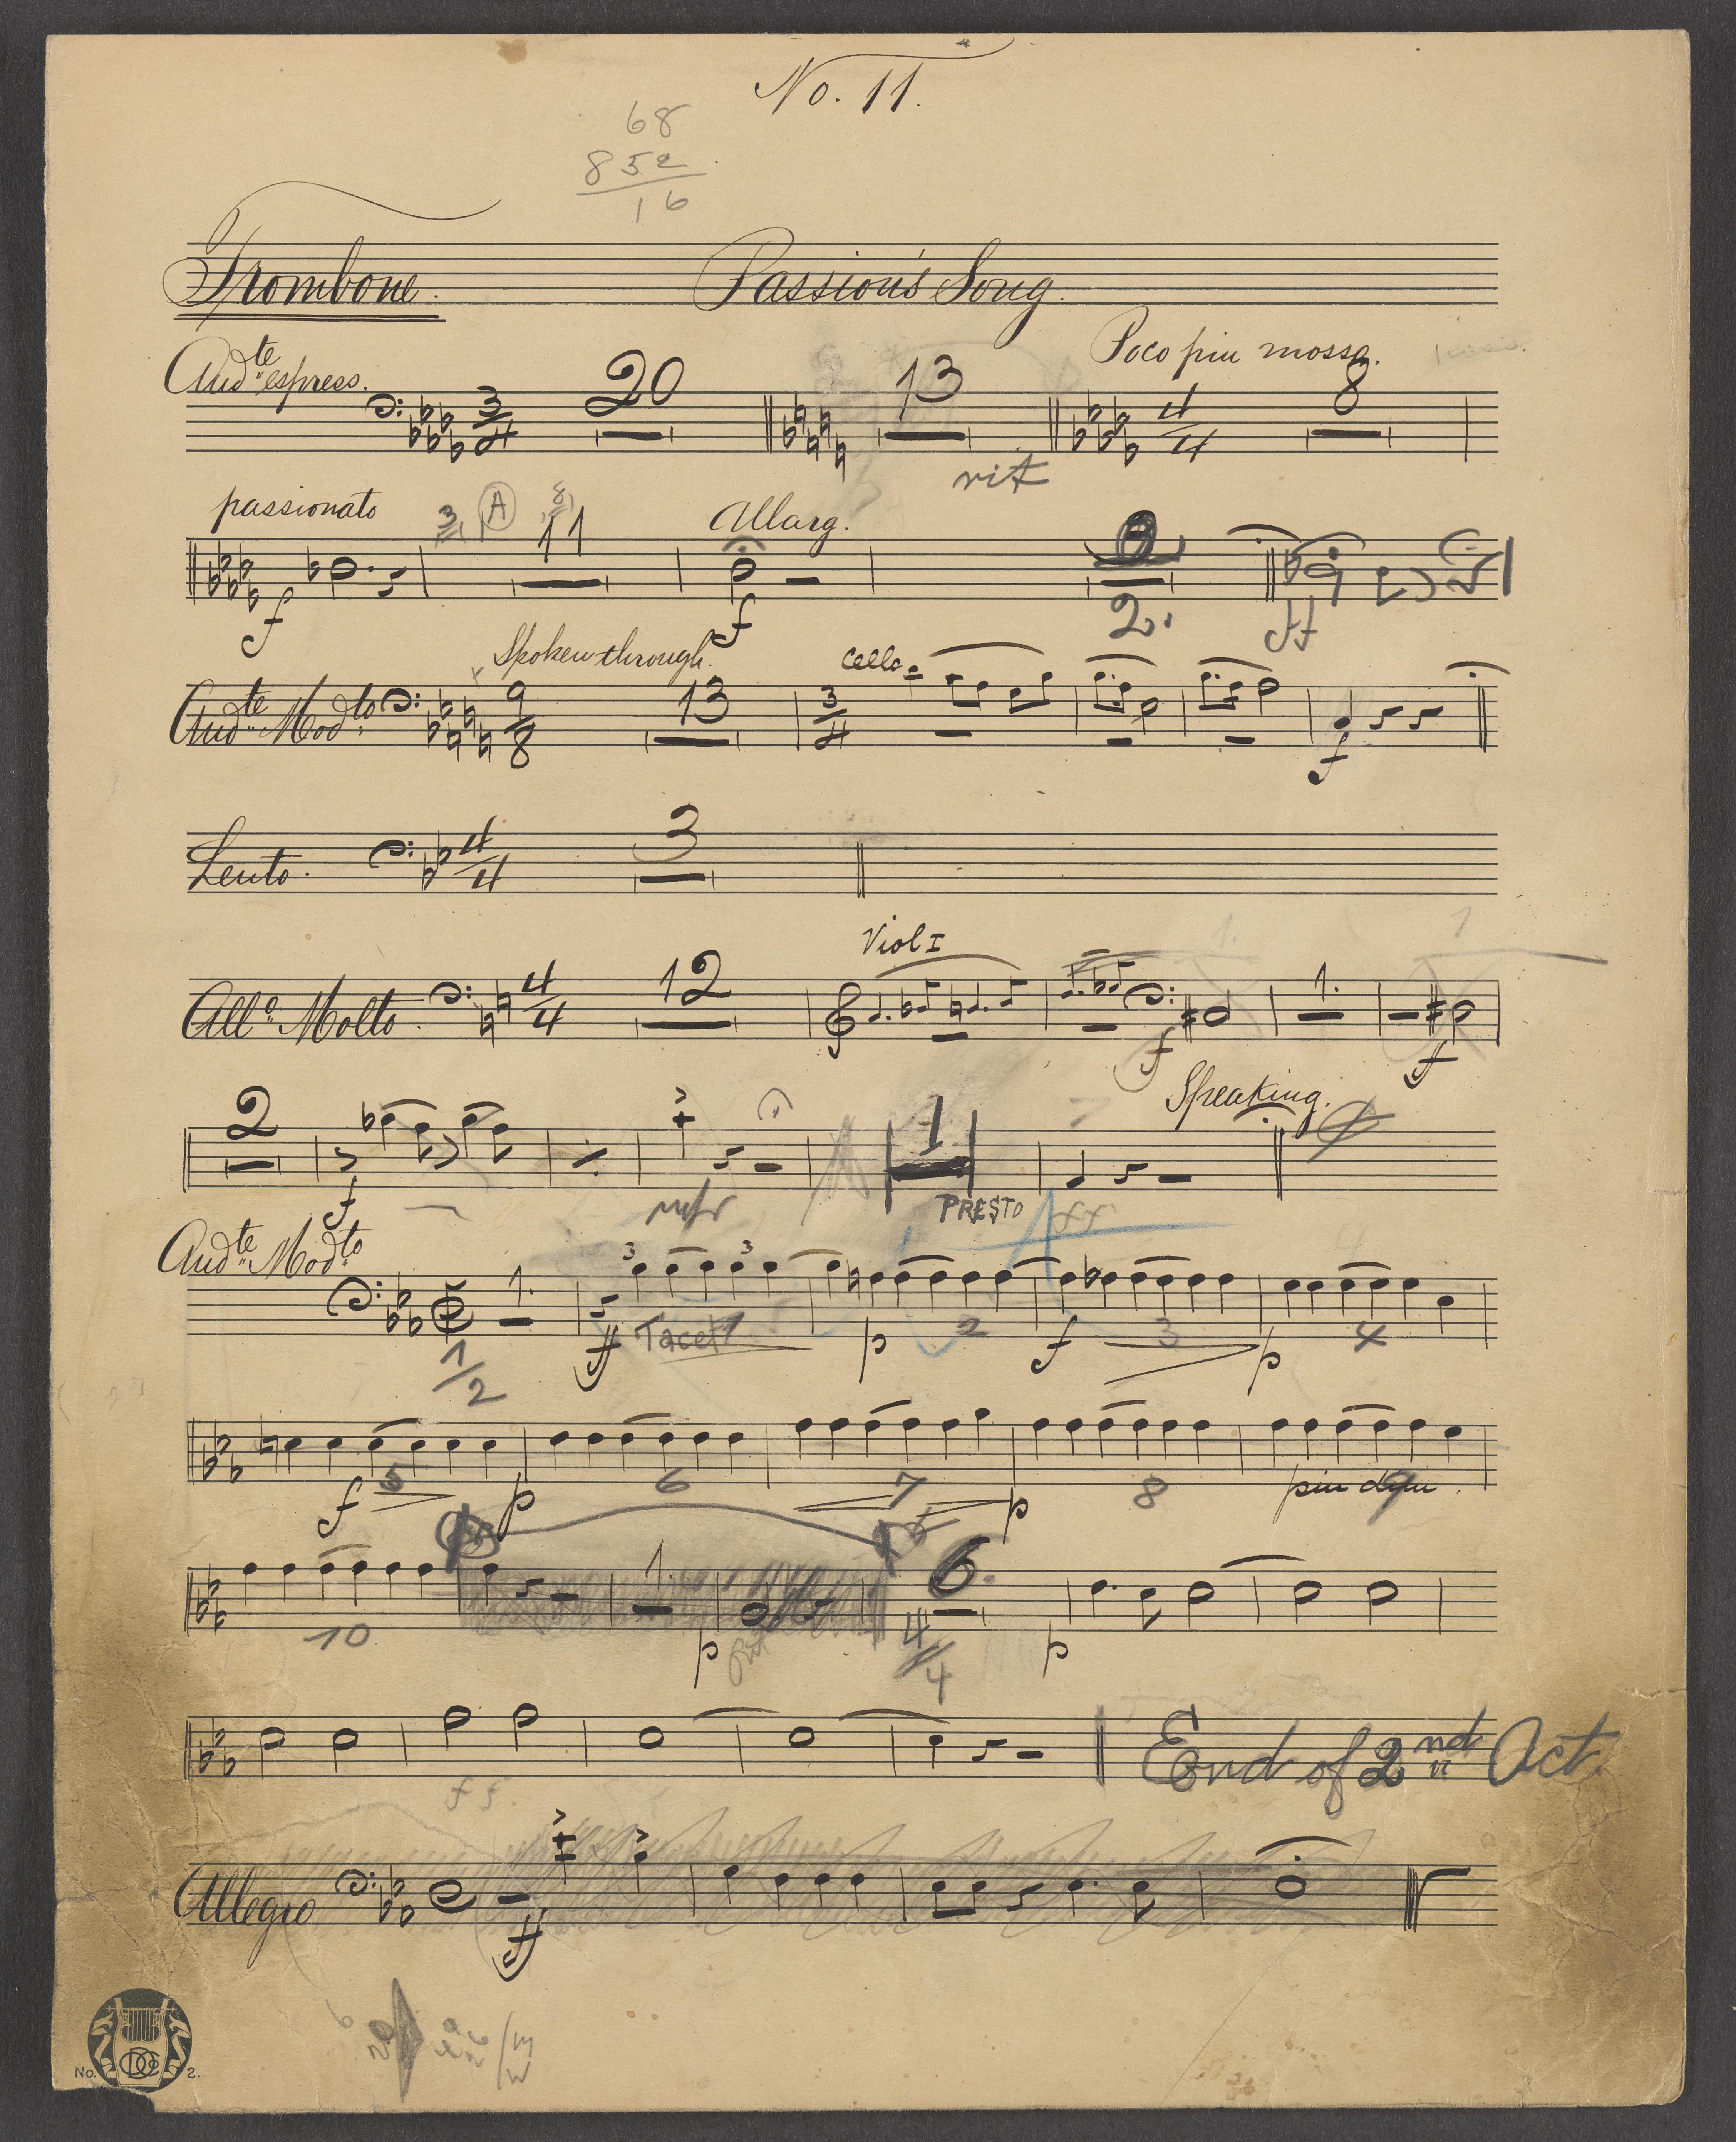 No. 11.
68
852
16
Trombone. Passion's Song.
And.te espress. 3/4 20 13 rit Poco piu mosso. 4/4 8
passionato f 3 A 8 11 Allarg. f 2. ff
And.te Mod.to 9/8 Spoken through. 13 3/4 cello f
Lento. 4/4 3
All.o Molto. 4/4 12 Viol I f 1. 1. f 1
2 f 1 PRESTO ff Speaking.
And.te Mod.to 1/2 1. 3 3 ff Tacet 1 p 2 f 3 p 4 4
f 5 p 6 7 p 8 piu dim. 9
10 1. p 6. 4/4 p
ff. End of 2nd Act.
Allegro ff
No. 2.